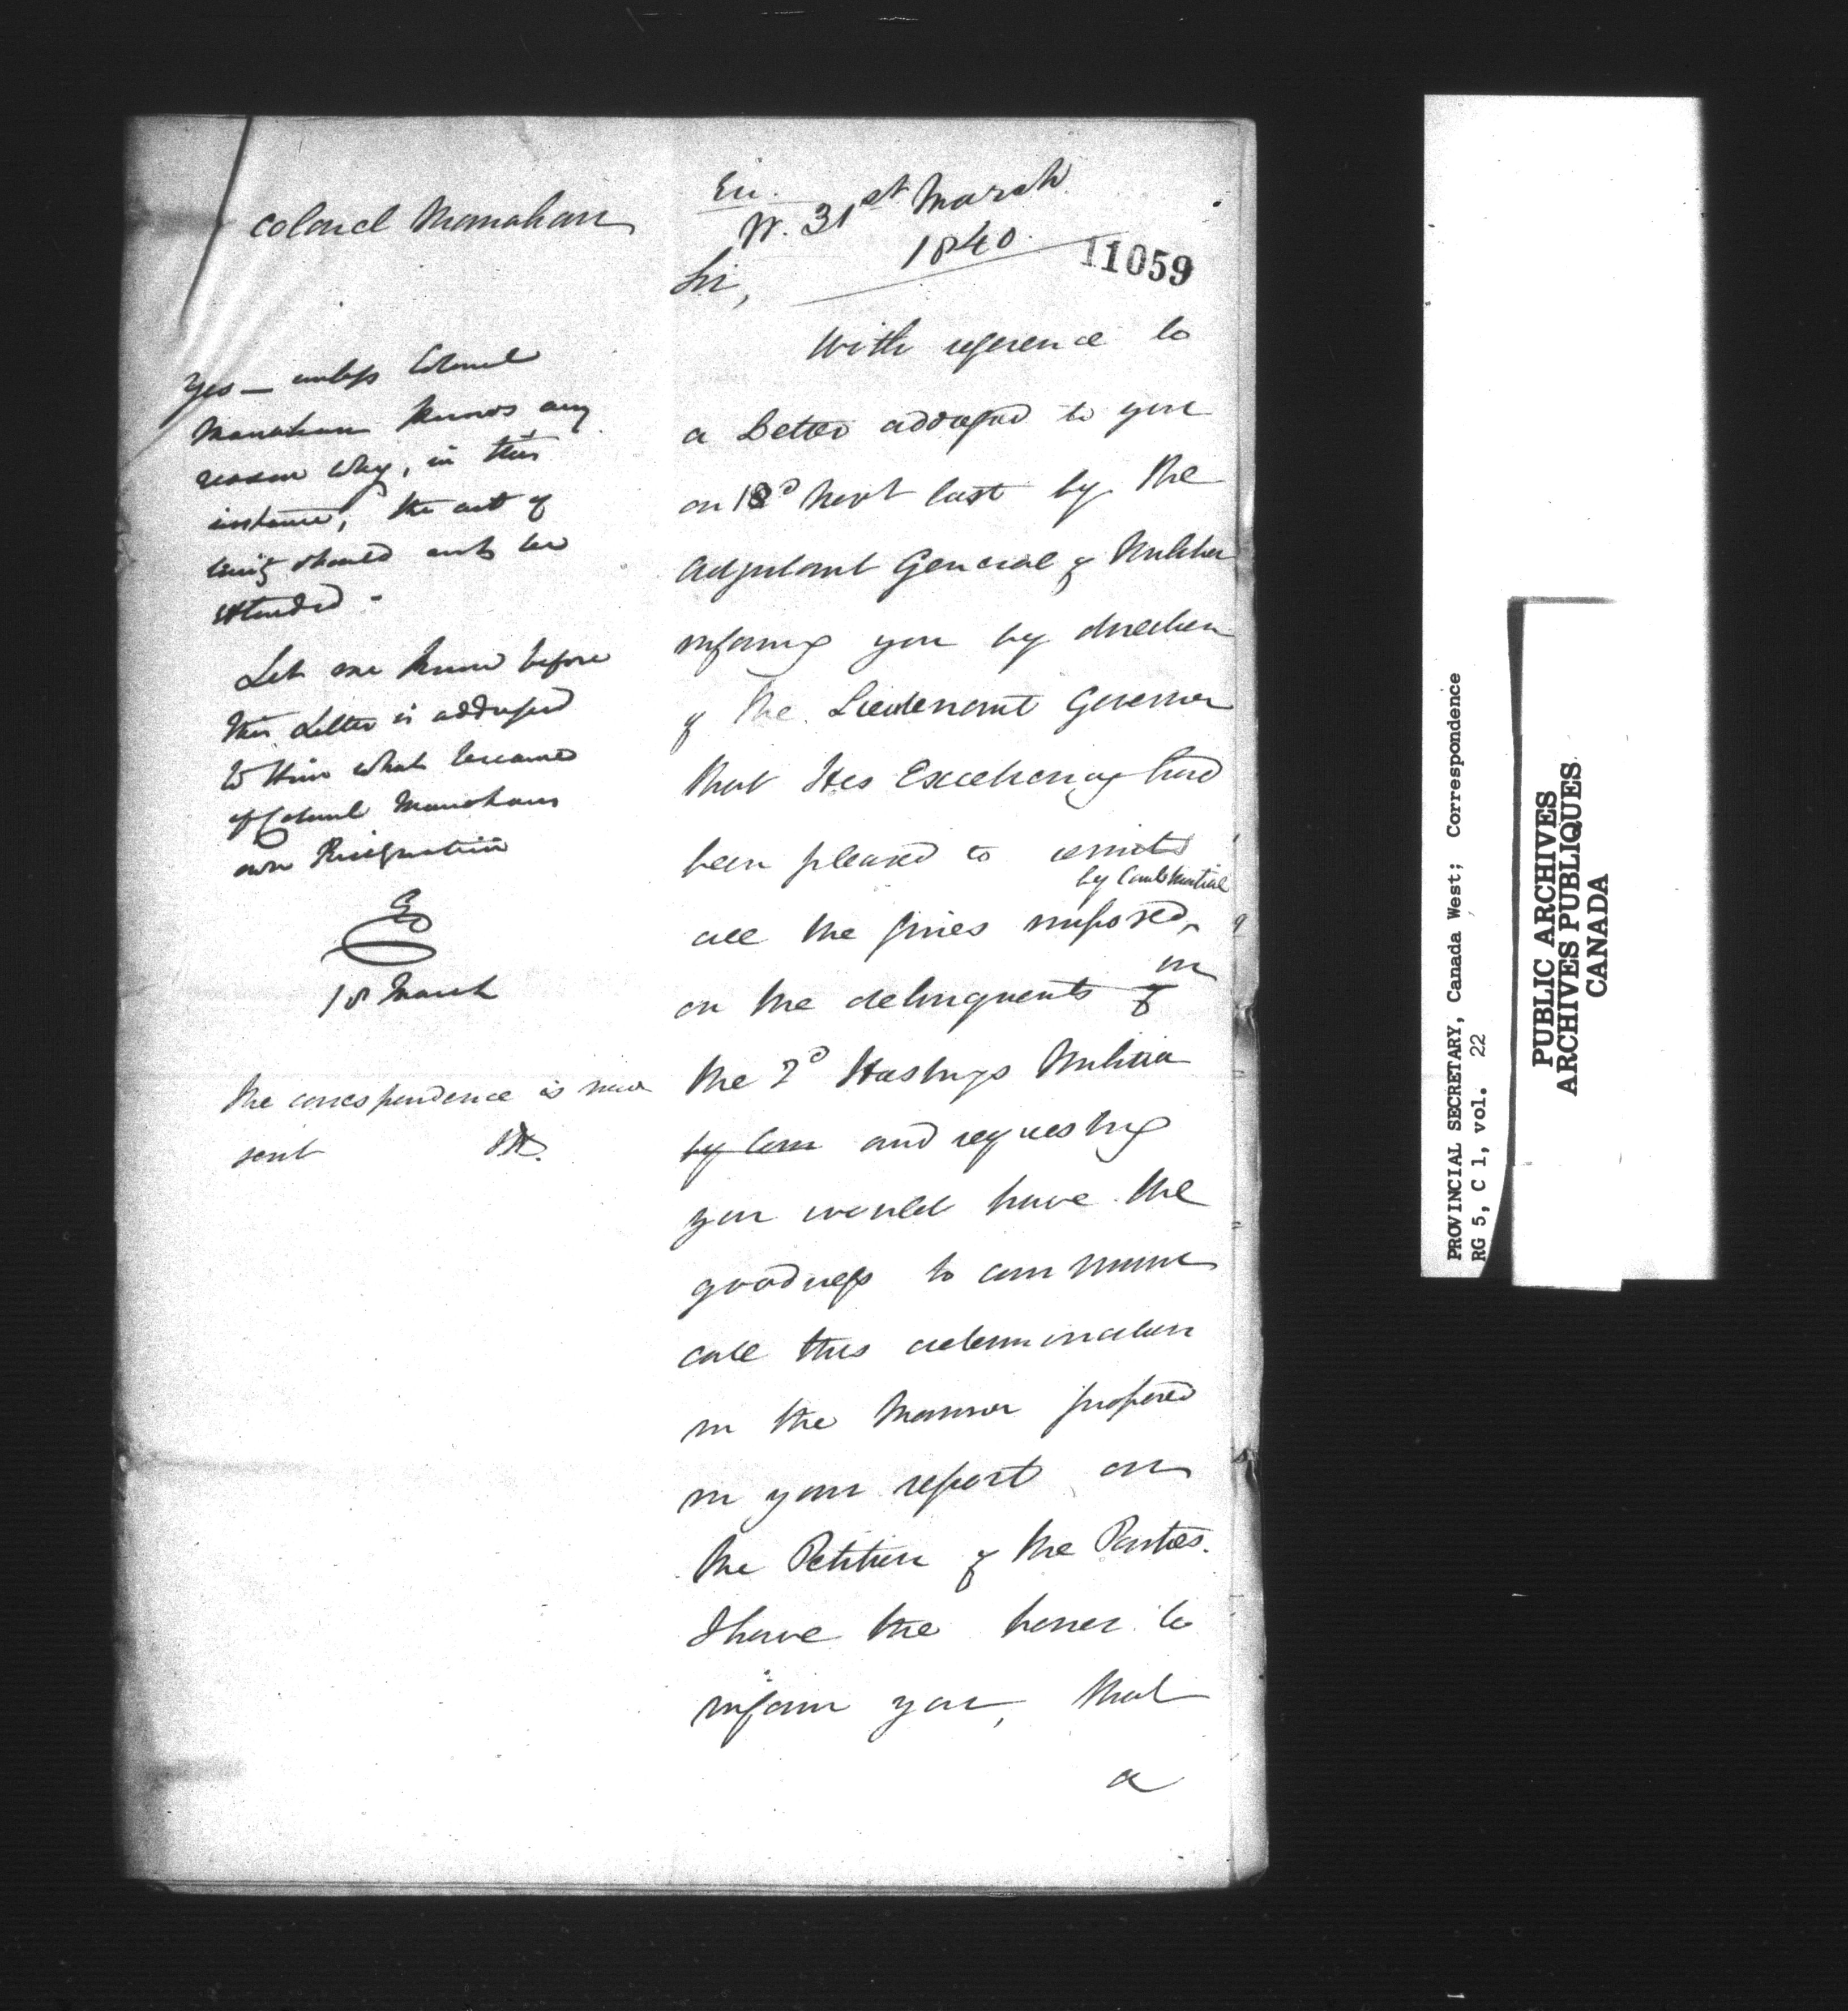 Colonel Manahan
Yes — unless Colonel
Manahan knows any
reason why, in this
instance, the act of
should not be
extended.
Let me know before
this Letter is addressed
to Him what became
of Colonel Manahans
own Resignation
18 March
The correspondence is now
sent
31st March
1840.
11059
Sir,
With reference to
a Letter addressed to you
on Novr last by the
Adjutant General of Militia
informg you by direction
of the Lieutenant Governor
that His Excellency had
been pleased to remit
by Court Martial
all the fines imposed
in
on the delinquents of
the 2d Hastings Militia
by Cour and requesting
you would have the
goodness to commune
cate this determination
in the manner proposed
in your report on
the Petition of the Parties.
I have the honor to
inform you, that
a
PROVINCIAL SECRETARY, Canada West; Correspondence
RG 5, C 1, vol. 22
PUBLIC ARCHIVES
ARCHIVES PUBLIQUES
CANADA